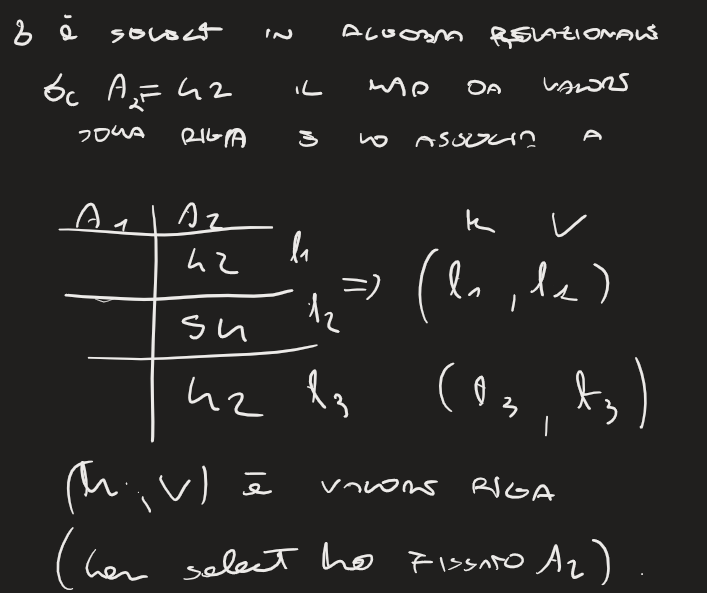 σ è select in algebra relazionale
σc A2 = 42 il map da valore
della riga e lo associa a
A1 A2 k v
42 t1 => (t1, t1)
54 t2
42 t3 (t3, t3)
(k, v) è valore riga
(per select ho fissato A2).